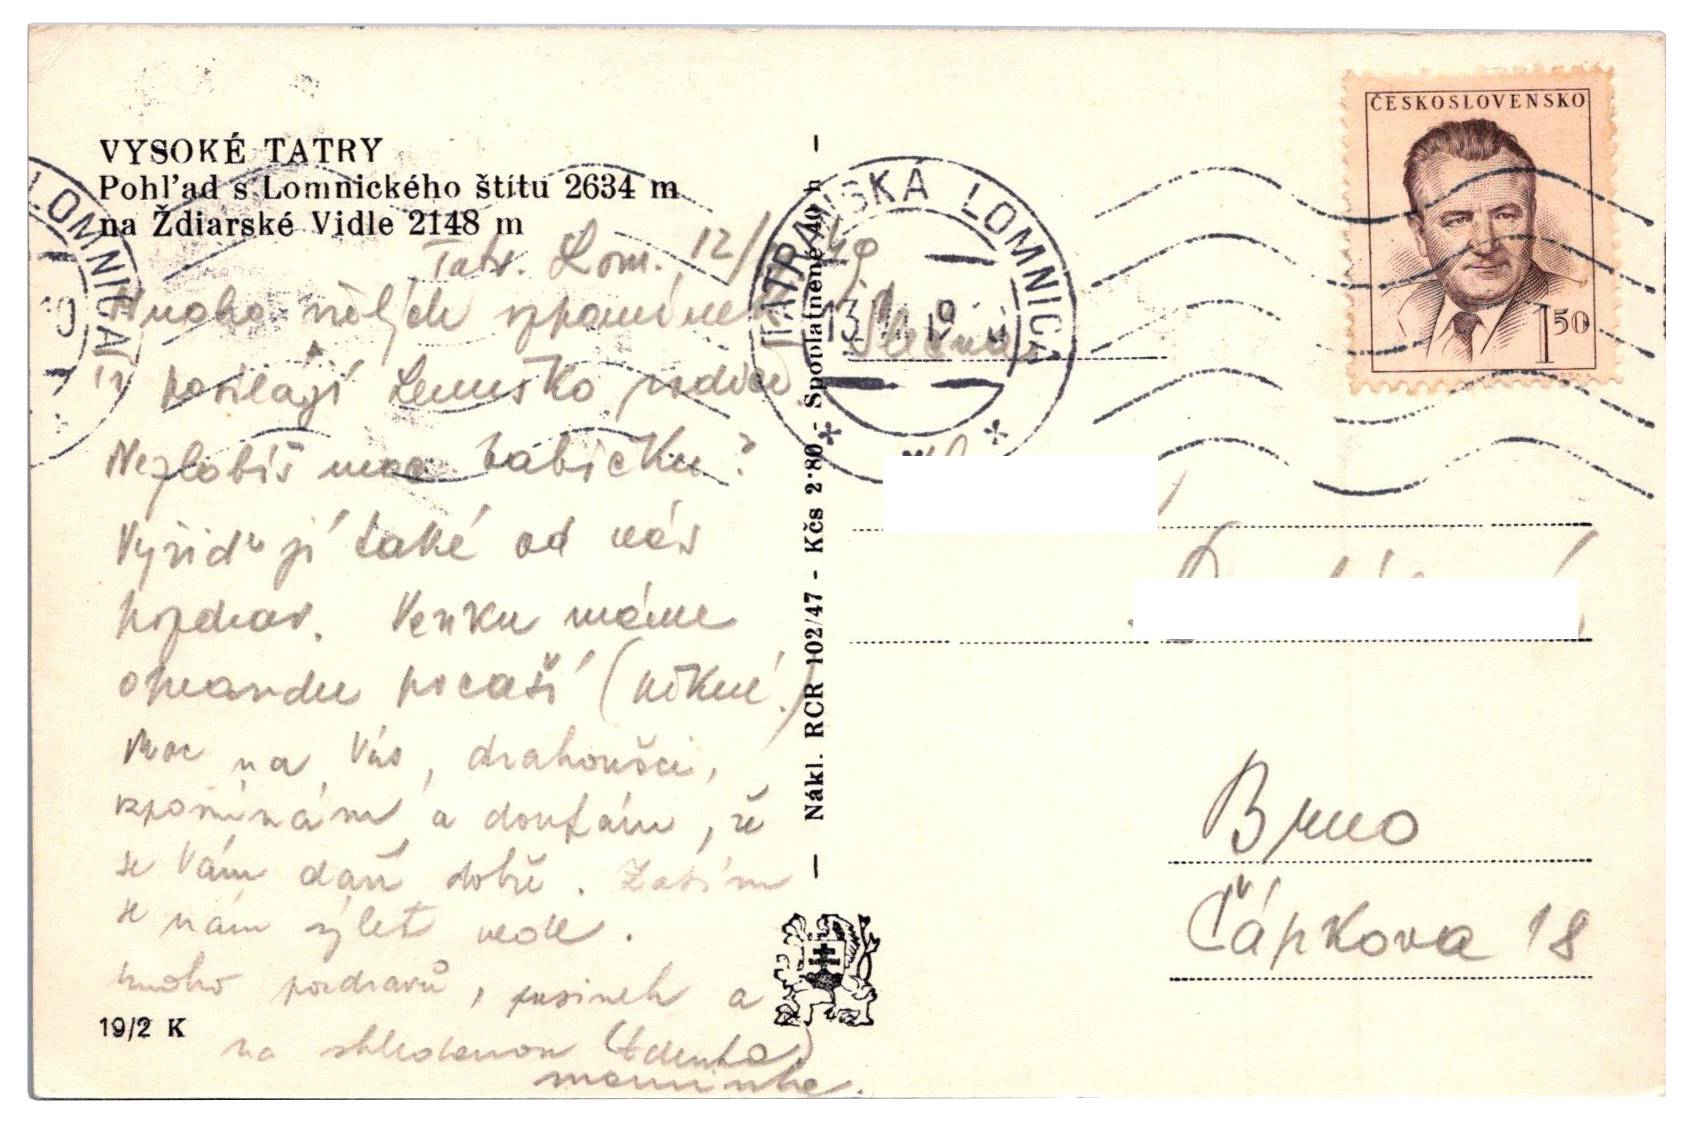 VYSOKÉ TATRY
Pohl'ad s Lomnického štítu 2634 m
na Ždiarské Vidle 2148 m
Tatr. Lom. 12/
Mnoho milých vzpomínek
posílají Lenuško rodiče.
Nezlobíš moc babičku?
Vyřiď jí také od nás
pozdrav. Venku máme
opravdu počasí (pěkné.)
Moc na Vás, drahoušci,
vzpomínám a doufám, že
se Vám daří dobře. Zatím
se nám výlet vede.
mnoho pozdravů, pusinek a
na shledanou (Zdenka)
maminka.
19/2 K
Nákl. RCR 102/47 - Kčs 2·80 - Spoplatnené 40 h
TATRANSKÁ LOMNICA
13
LOMNICA
ČESKOSLOVENSKO
1 50
Slečna
Brno
Čápkova 18